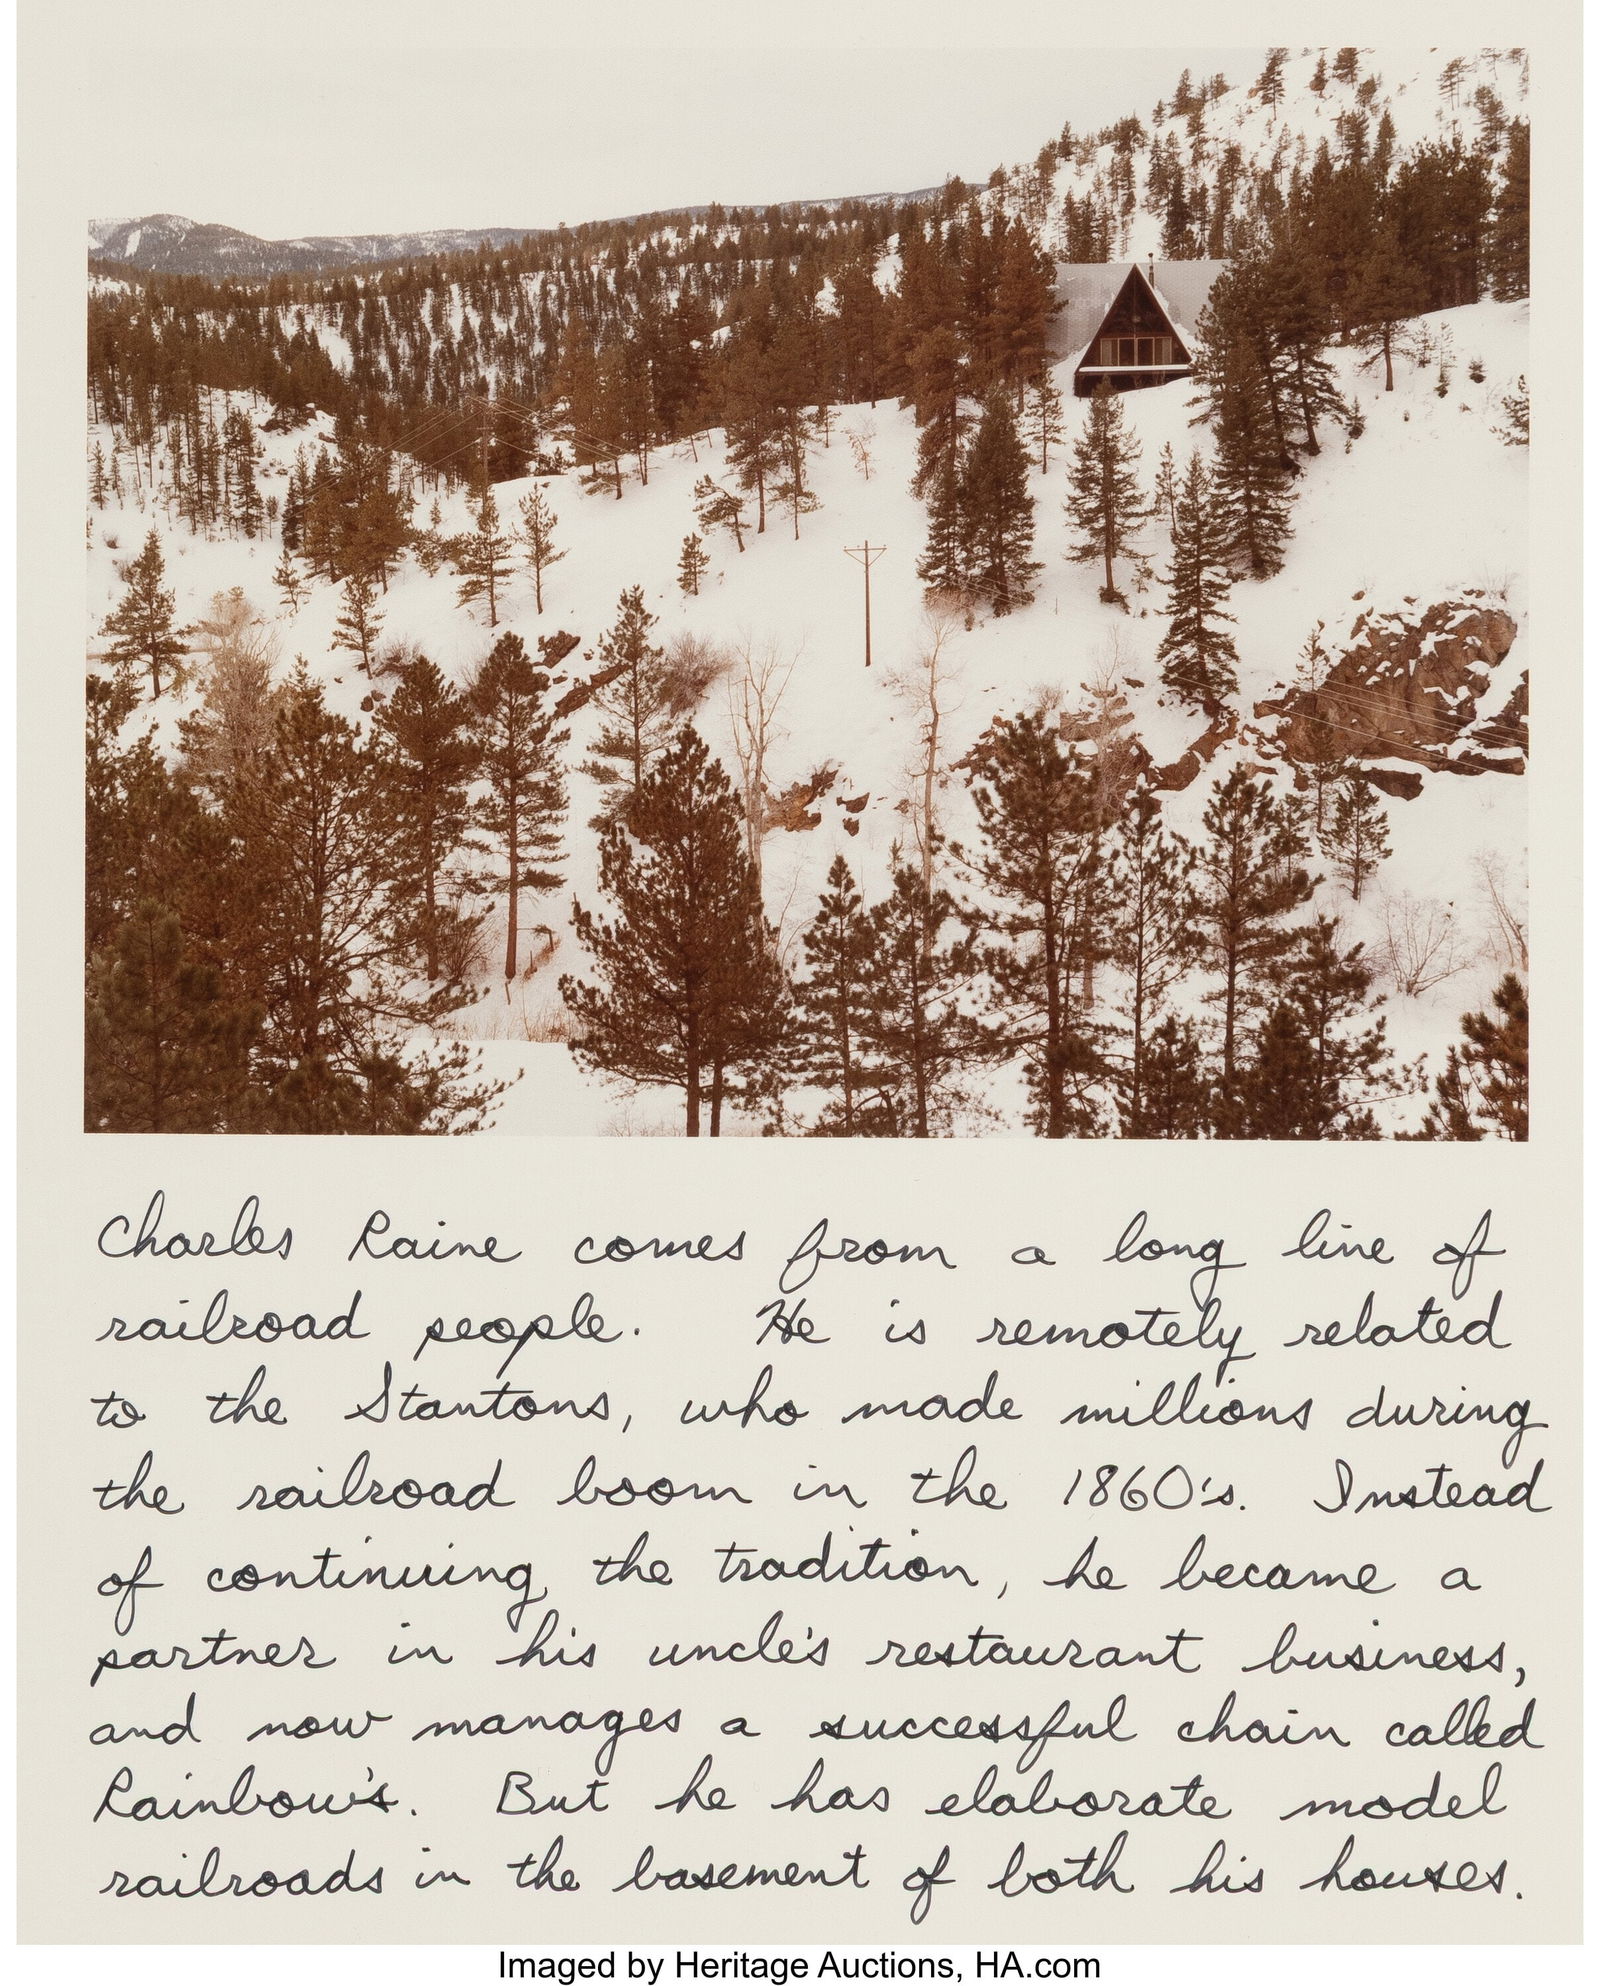 Charles Raine comes from a long line of
railroad people. He is remotely related
to the Stantons, who made millions during
the railroad boom in the 1860's. Instead
of continuing the tradition, he became a
partner in his uncle's restaurant business,
and now manages a successful chain called
Rainbow's. But he has elaborate model
railroads in the basement of both his houses.
Imaged by Heritage Auctions, HA.com